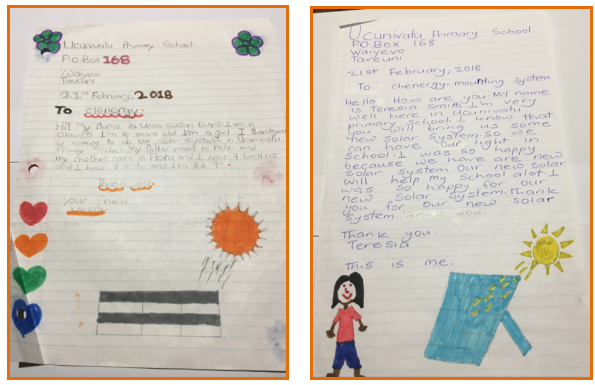 Ucunivatu Primary School
P.O.Box 168
Waiyevo
Taveuni
21st February, 2018
To clenergy
Hi! My Name is
class 8 I'm 12 years old I'm a girl. I thankyou
for coming to do our solar system in Ucunivatu
Primary School. My father name is Pete and
my mother name is Flora and I have 7
and I have
Your friend
Ucunivatu Primary School
P.O.Box 168
Waiyevo
Taveuni
21st February, 2018
To chenergy-mounting system
Hello How are you. My name
is Teresia Smith. I'm very
well here in Ucunivatu
primary School. I know that
you will bring us some
new solar system. So we
can have our light in
School. I was so happy
because we have are new
solar system. Our new Solar
will help my School alot. I
was so happy for our
new Solar System. Thank
you for our new solar
system.
Thank you.
Teresia
This is me.